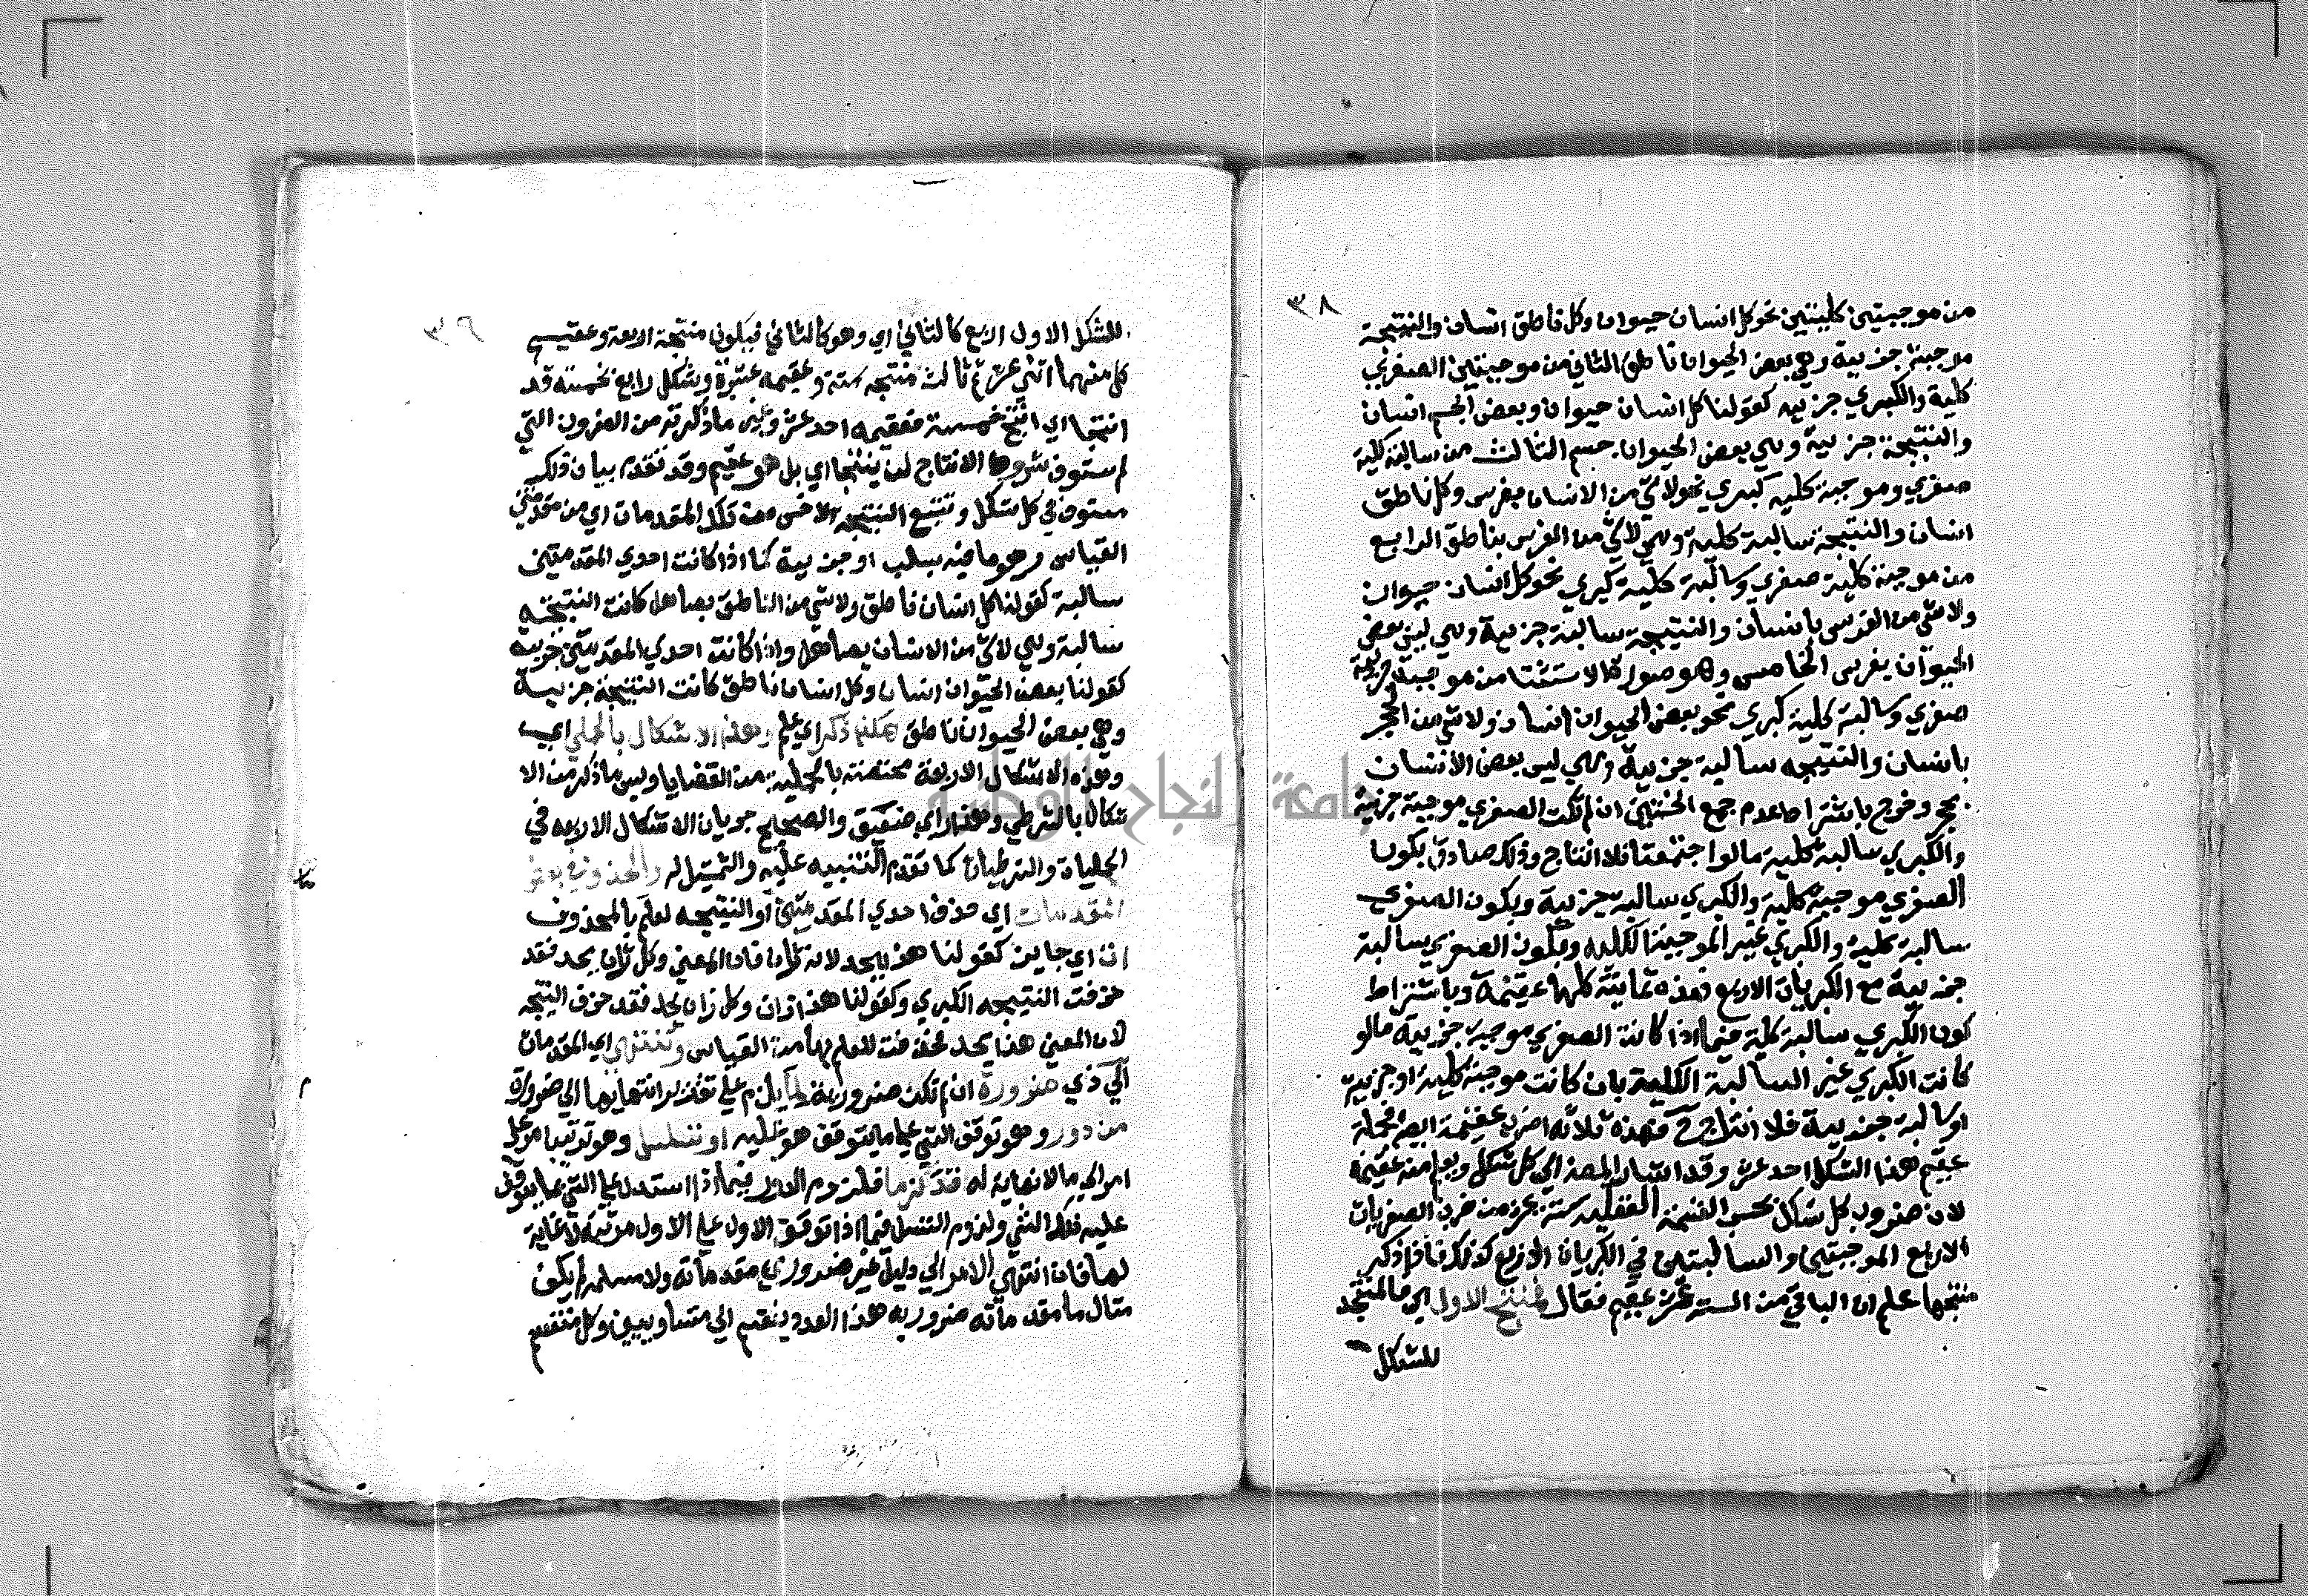 ٣٨
من موجبتين كليتين نحو كل انسان حيوان وكل ناطق انسان والنتيجة
موجبة جزيية وهي بعض الحيوان ناطق الثاني من موجبتين الصغري
كلية والكبري جزييه كقولنا كل انسان حيوان وبعض الجسم انسان
والنتيجة جزيية وهي بعض الحيوان جسم الثالث من سالبة كلية
صغري وموجبة كليه كبري نحو لا شي من الانسان بفرس وكل ناطق
انسان والنتيجة سالبة كلية وهي لا شي من الفرس بناطق الرابع
من موجبة كلية صغري وسالبة كلية كبري نحو كل انسان حيوان
ولا شي من الفرس بانسان والنتيجة سالبة جزيية وهي ليس بعض
الحيوان بفرس الخامس وهو صورة الاستثنا من موجبة جزيية
صغري وسالبة كلية كبري نحو بعض الحيوان انسان ولا شي من الحجر
بانسان والنتيجه سالبة جزيية وهي ليس بعض الانسان
بحجر وخرج باشتراط عدم جمع الخستين ان لم تكن الصغري موجبة جزيية
والكبري سالبة كلية ما لو اجتمعتا فلا انتاج وذلك صادق بكون
الصغري موجبة كلية والكبري سالبة جزيية وبكون الصغري
سالبة كلية والكبري غير الموجبة الكليه وبكون الصغري سالبة
جزيية مع الكبريات الاربع فهذه ثمانية كلها عقيمة وباشتراط
كون الكبري سالبة كلية فيما اذا كانت الصغري موجبة جزيية ما لو
كانت الكبري غير السالبة الكلية بان كانت موجبة كلية او جزيية
او سالبة جزيية فلا انتاج ح فهذه ثلاثه اضرب عقيمة ايضا فجملة
عقيم هذا الشكل احد عشر وقد اشار المص الي كل شكل ويعلم منه عقيمه
لان ضروب كل شكل بحسب القسمة العقليه ستة عشر من ضرب الصغريات
الاربع الموجبتين والسالبتين في الكبريات الاربع كذلك فاذا ذكر
منتجها علم ان الباقي من الستة عشر عقيم فقال لمنتج الاول اي فالمنتجه
للشكل
٣٩
للشكل الاول اربع كالثاني اي وهو كالثاني فيكون منتجه اربعة وعقيم
كل منهما اثني عشر ثم ثالث منتجه ستة وعقيمه عشرة وشكل رابع بخمسة قد
انتجا اي انتج خمسة فعقيمه احد عشر وغير ما ذكرته من الضروب التي
لم ستوف شروط الانتاج لن ينتجا اي بل هو عقيم وقد تقدم بيان ذلك
مستوفي في كل شكل وتتبع النتيجة الاخس من تلك المقدمات اي من مقدمتي
القياس وهو ما فيه سلب او جزيية كما اذا كانت احدي المقدمتين
سالبة كقولنا كل انسان ناطق ولا شي من الناطق بصاهل كانت النتيجة
سالبة وهي لا شي من الانسان بصاهل واذا كانت احدي المقدمتين جزييه
كقولنا بعض الحيوان انسان وكل انسان ناطق كانت النتيجة جزيية
وهي بعض الحيوان ناطق وهذه الاشكال بالحملي اي
وهذه الاشكال الاربعة مختصة بالحملية من القضايا وليس ما ذكر من الا
شكال بالشرطي وهذا راي ضعيف والصحيح جريان الاشكال الاربعه في
الحمليات والشرطيات كما تقدم التنبيه عليه والتمثيل له والحذف في بعض
المقدمات اي حذف احدي المقدمتين او النتيجه لعلم بالمحذوف
ات اي جاين كقولنا هذا يحد لانه زان فان المعني وكل زان يحد فقد
حذفت النتيجه الكبري وكقولنا هذا زان وكل زان يحد فقد حذف النتيجه
لان المعني هذا يحد فحذفت للعلم بها من القياس وتنتهي اي المقدمات
الي ذي ضرورة ان لم تكن ضرورية لما يلزم علي تقدير انتهايها الي ضرورة
من دور وهو توقف الشي علي ما يتوقف هو عليه او تسلسل وهو ترتيب امر علي
امر الي ما لا نهاية له قد لزما فلزوم الدور فيما اذا استدل علي الشي بما يتوقف
عليه ذلك الشي ولزوم التسلسل فيما اذا توقف الاول علي الاول مرتبة لا غاية
لها فان انتهي الامر الي دليل غير ضروري مقدماته ولا مسلمه لم يكف
مثال ما مقدماته ضروريه هذا العدد ينقسم الي متساويين وكل منقسم